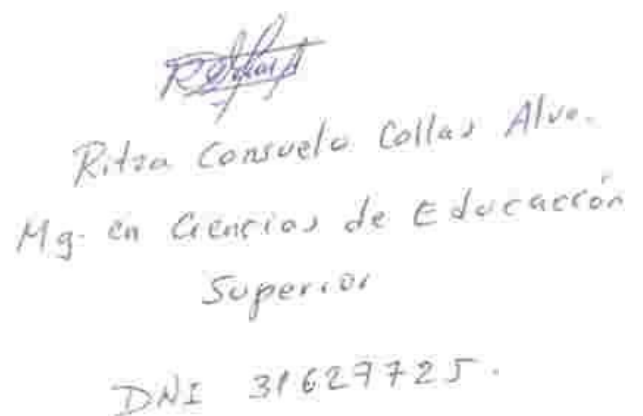 Ritza Consuelo Collas Alva.
Mg. en Ciencias de Educación
Superior
DNI 31627725.